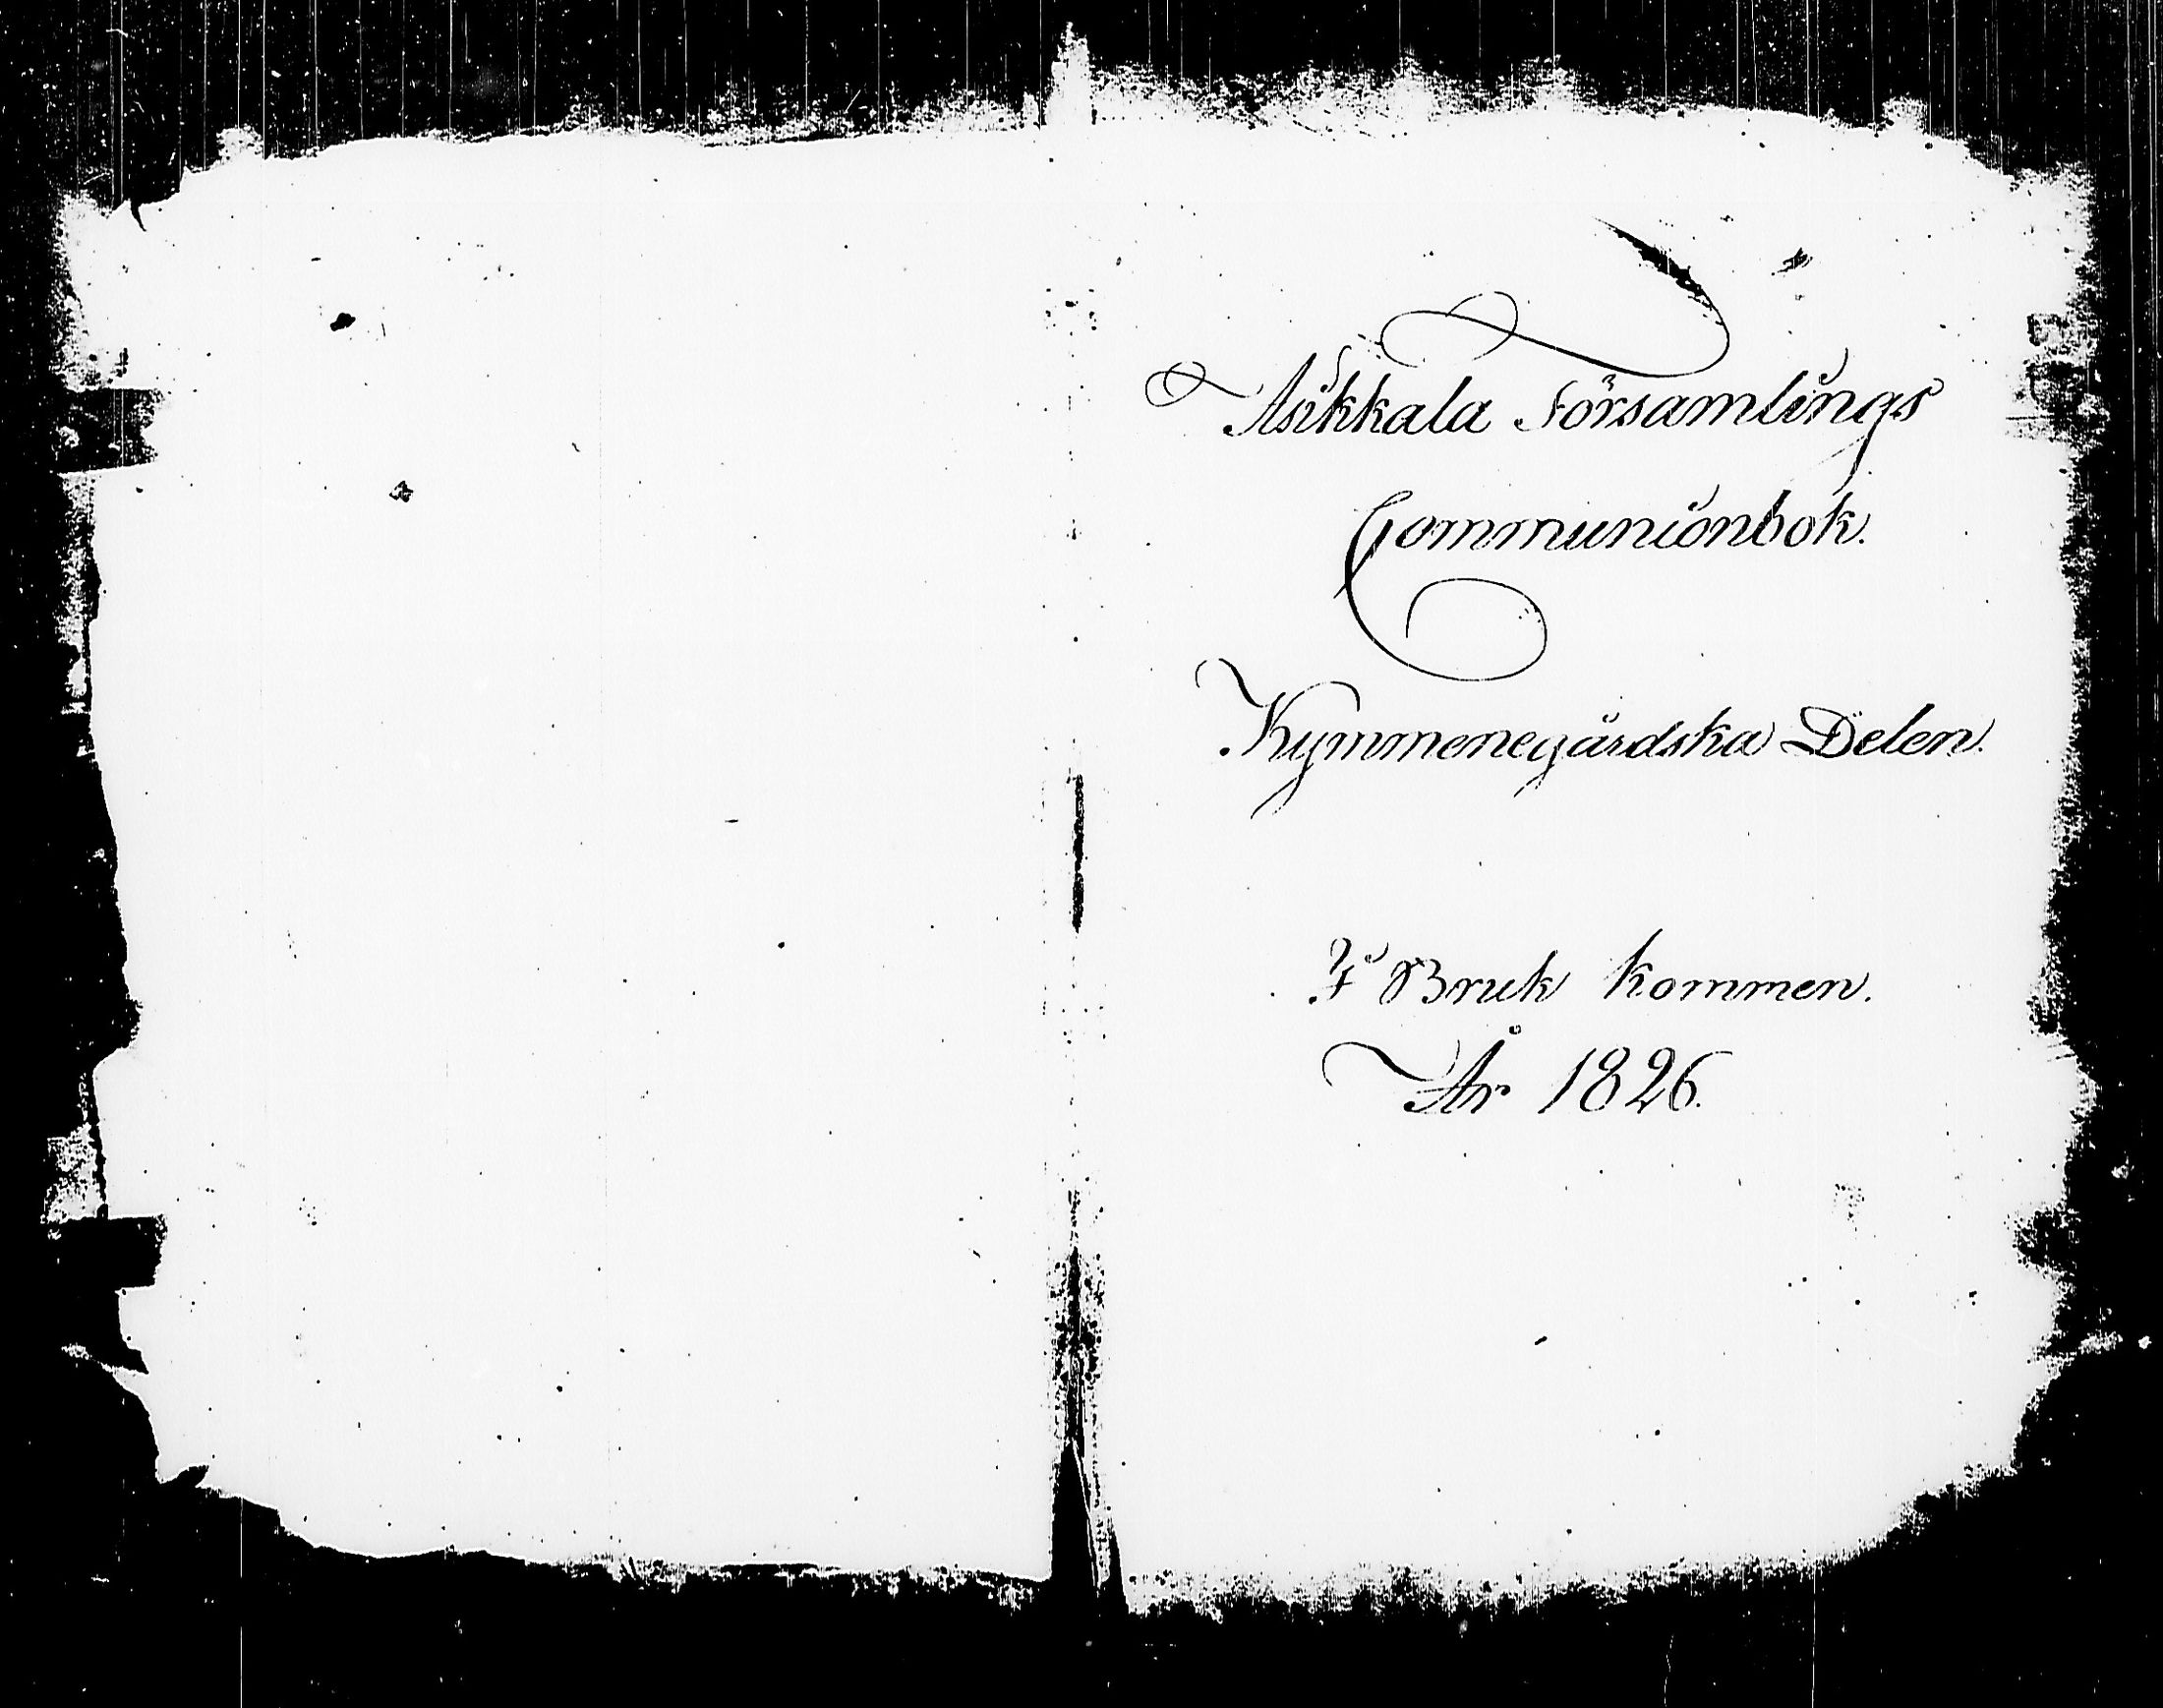 Asikkala Församlings
Communionbok.
Kymmenegårdska Delen.
I Bruk kommen.
År 1826.